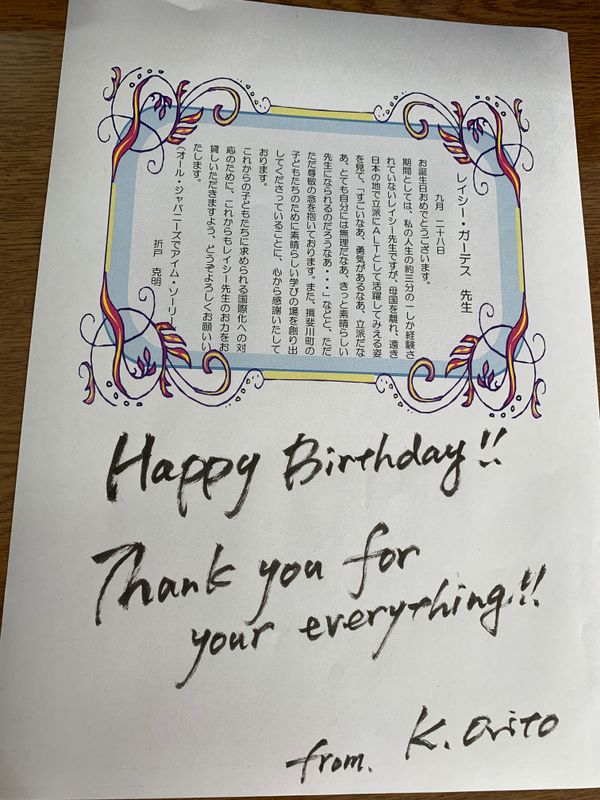 レイシー・ガーデス　先生
九月　二十八日
お誕生日おめでとうございます。
期間としては、私の人生の約三分の一しか経験さ
れていないレイシー先生ですが、母国を離れ、遠き
日本の地で立派にＡＬＴとして活躍してみえる姿
を見て、「すごいなあ、勇気があるなあ、立派だな
あ、とても自分には無理だなあ、きっと素晴らしい
先生になられるのだろうなあ・・・」などと、ただ
ただ尊敬の念を抱いております。また、揖斐川町の
子どもたちのために素晴らしい学びの場を創り出
してくださっていることに、心から感謝いたして
おります。
これからの子どもたちに求められる国際化への対
応のために、これからもレイシー先生のお力をお
貸しいただきますよう、どうぞよろしくお願いい
たします。
（オール・ジャパニーズでアイム・ソーリー
折戸　克明
Happy Birthday!!
Thank you for
your everything!!
from. K. Orito